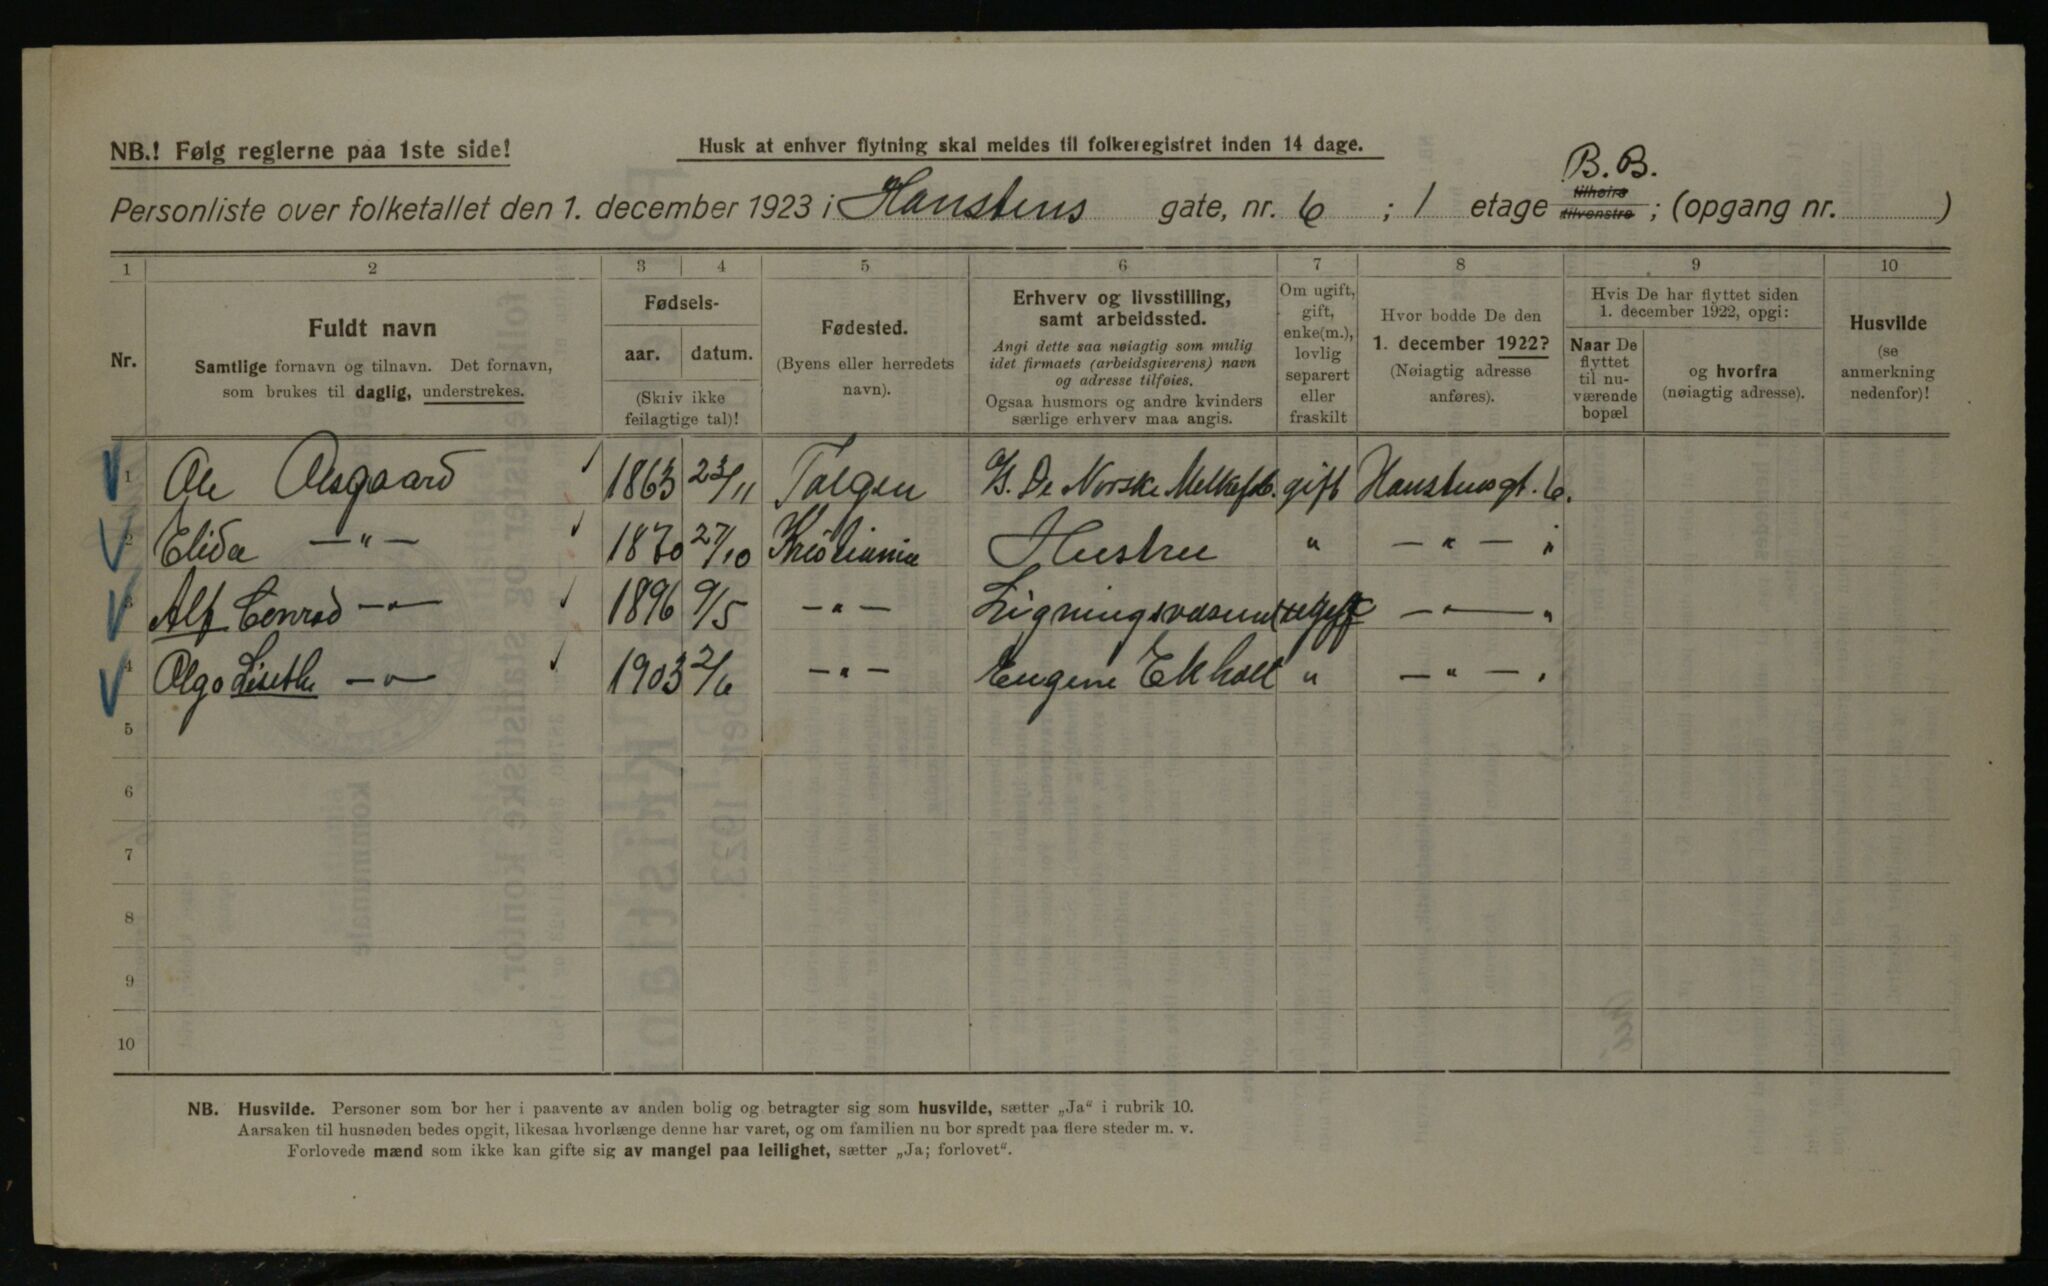 NB.! Følg reglerne paa 1ste side!
Husk at enhver flytning skal meldes til folkeregistret inden 14 dage.
B.B.
Personliste over folketallet den 1. december 1923 i Hanstens gate, nr. 6 ; 1 etage tilhøire tilvenstre ; (opgang nr. )
1 2 3 4 5 6 7 8 9 10
Nr.
Fuldt navn
Samtlige fornavn og tilnavn. Det fornavn,
som brukes til daglig, understrekes.
Fødsels-
aar. datum.
(Skriv ikke
feilagtige tal)!
Fødested.
(Byens eller herredets
navn).
Erhverv og livsstilling,
samt arbeidssted.
Angi dette saa nøiagtig som mulig
idet firmaets (arbeidsgiverens) navn
og adresse tilføies.
Ogsaa husmors og andre kvinders
særlige erhverv maa angis.
Om ugift,
gift,
enke(m.),
lovlig
separert
eller
fraskilt
Hvor bodde De den
1. december 1922?
(Nøiagtig adresse
anføres).
Hvis De har flyttet siden
1. december 1922, opgi:
Naar De
flyttet
til nu-
værende
bopæl
og hvorfra
(nøiagtig adresse).
Husvilde
(se
anmerkning
nedenfor)!
1 Ole Aasgaard 1863 23/11 Tolgen A/S. De Norske Melkefab. gift Hanstensgt. 6.
2 Elida —"— 1870 27/10 Kristiania Hustru " —"— "
3 Alf Conrad —"— 1896 9/5 —"— Ligningsvæsenet ugift —"— "
4 Olga Lisethe —"— 1903 2/6 —"— Eugene Ekholt " —"— "
5
6
7
8
9
10
NB. Husvilde. Personer som bor her i paavente av anden bolig og betragter sig som husvilde, sætter „Ja" i rubrik 10.
Aarsaken til husnøden bedes opgit, likesaa hvorlænge denne har varet, og om familien nu bor spredt paa flere steder m. v.
Forlovede mænd som ikke kan gifte sig av mangel paa leilighet, sætter „Ja; forlovet".